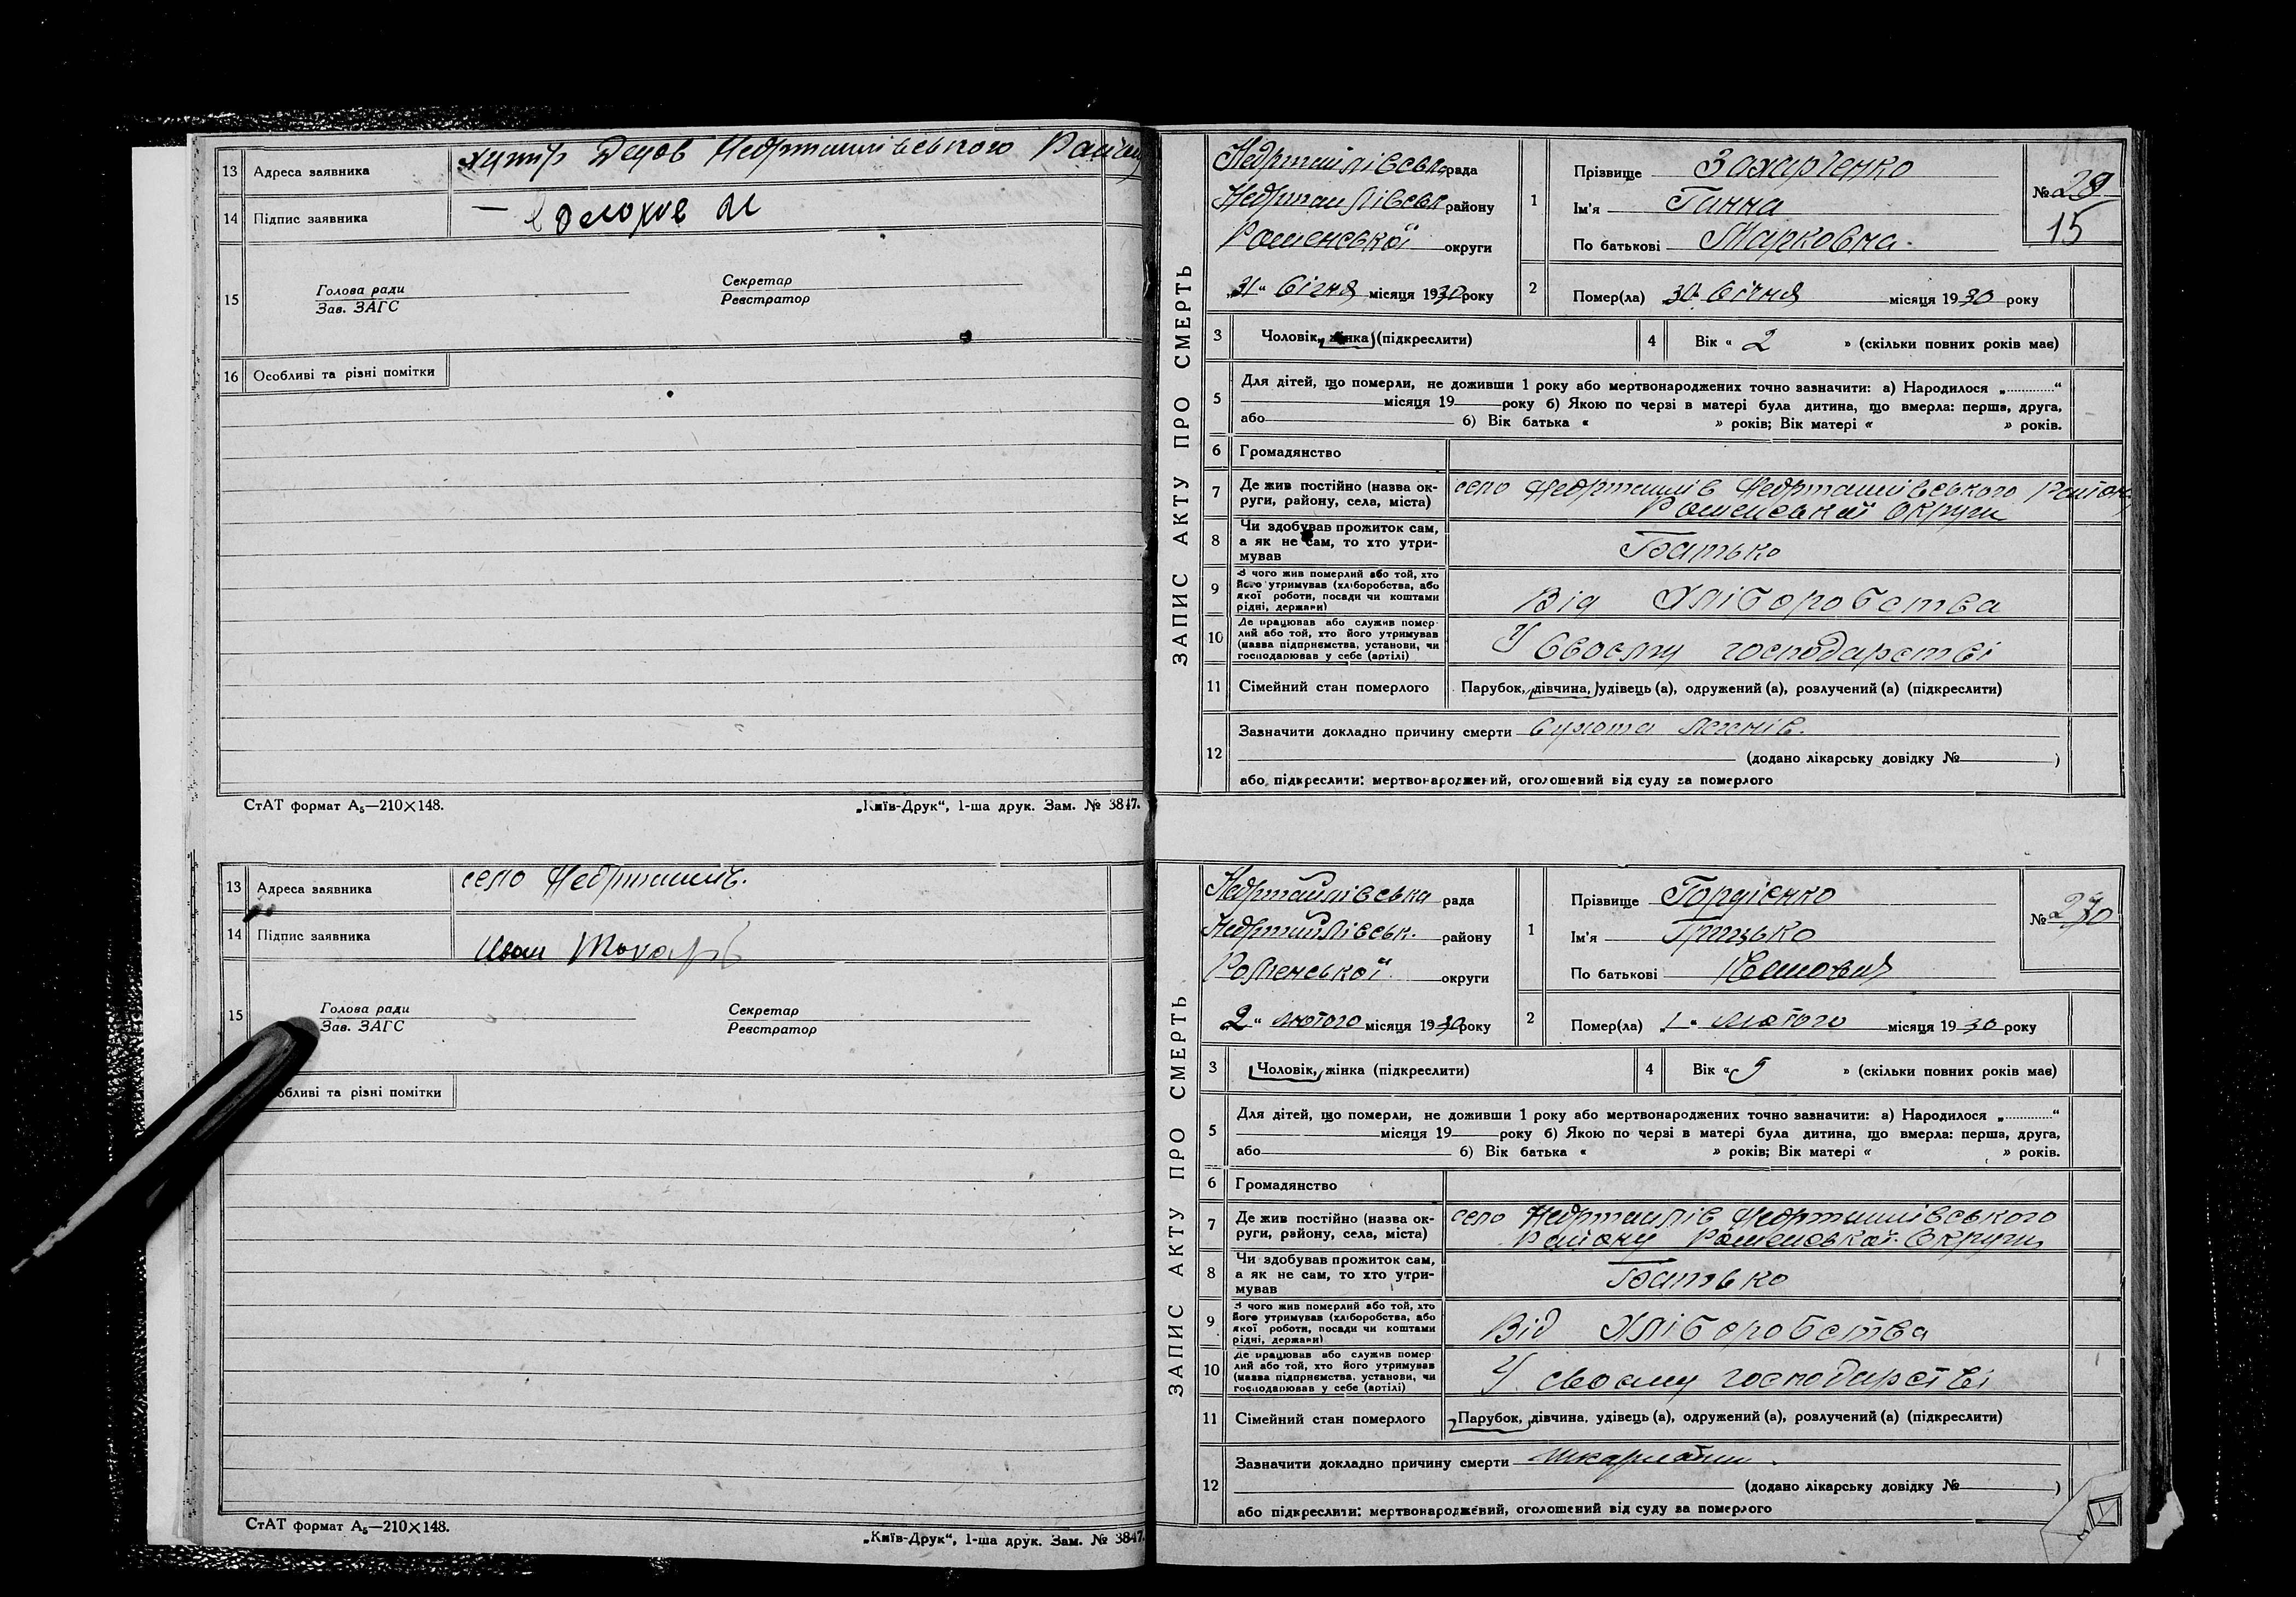 13 Адреса заявника хутір Децов Недригайлівського Району
14 Підпис заявника
15 Голова ради Секретар
Зав. ЗАГС Реєстратор
16 Особливі та різні помітки
СтАТ формат А₅—210×148. „Київ-Друк“, 1-ша друк. Зам. № 3847.
13 Адреса заявника село Недригайлів.
14 Підпис заявника Иван
15 Голова ради Секретар
Зав. ЗАГС Реєстратор
Особливі та різні помітки
СтАТ формат А₅—210×148. „Київ-Друк“, 1-ша друк. Зам. № 3847.
ЗАПИС АКТУ ПРО СМЕРТЬ
Недригайлівська рада
Недригайлівськ району
Роменської округи
„31“ січня місяця 1930 року
1 Прізвище Захарченко
Ім'я Ганна
По батькові Марковна.
№ 28
15
2 Помер(ла) 30 січня місяця 1930 року
3 Чоловік, жінка (підкреслити) 4 Вік « 2 » (скільки повних років має)
5 Для дітей, що померли, не доживши 1 року або мертвонароджених точно зазначити: а) Народилося „ “
місяця 19 року б) Якою по черзі в матері була дитина, що вмерла: перша, друга,
або б) Вік батька « » років; Вік матері « » років.
6 Громадянство
7 Де жив постійно (назва ок- село Недригайлів Недригайлівського Району
руги, району, села, міста) Роменської Округи
8 Чи здобував прожиток сам,
а як не сам, то хто утри- Батько
мував
9 З чого жив померлий або той, хто
його утримував (хліборобства, або
якої роботи, посади чи коштами Від Хліборобства
рідні, держави)
10 Де працював або служив помер-
лий або той, хто його утримував
(назва підприємства, установи, чи У своєму господарстві
господарював у себе (артілі)
11 Сімейний стан померлого Парубок, дівчина, удівець (а), одружений (а), розлучений (а) (підкреслити)
12 Зазначити докладно причину смерти Сухота легенів.
(додано лікарську довідку № )
або, підкреслити: мертвонароджений, оголошений від суду за померлого
ЗАПИС АКТУ ПРО СМЕРТЬ
Недригайлівська рада
Недригайлівськ. району
Роменської округи
„2“ лютого місяця 1930 року
1 Прізвище Гордієнко
Ім'я Грицько
По батькові
№
2 Помер(ла) „1“ лютого місяця 1930 року
3 Чоловік, жінка (підкреслити) 4 Вік « 5 » (скільки повних років має)
5 Для дітей, що померли, не доживши 1 року або мертвонароджених точно зазначити: а) Народилося „ “
місяця 19 року б) Якою по черзі в матері була дитина, що вмерла: перша, друга,
або б) Вік батька « » років; Вік матері « » років.
6 Громадянство
7 Де жив постійно (назва ок- село Недригайлів Недригайлівського
руги, району, села, міста) Району Роменської Округи
8 Чи здобував прожиток сам,
а як не сам, то хто утри- Батько
мував
9 З чого жив померлий або той, хто
його утримував (хліборобства, або
якої роботи, посади чи коштами Від Хліборобства
рідні, держави)
10 Де працював або служив помер-
лий або той, хто його утримував
(назва підприємства, установи, чи У своєму господарстві
господарював у себе (артілі)
11 Сімейний стан померлого Парубок, дівчина, удівець (а), одружений (а), розлучений (а) (підкреслити)
12 Зазначити докладно причину смерти Шкарлатин.
(додано лікарську довідку № )
або підкреслити: мертвонароджений, оголошений від суду за померлого